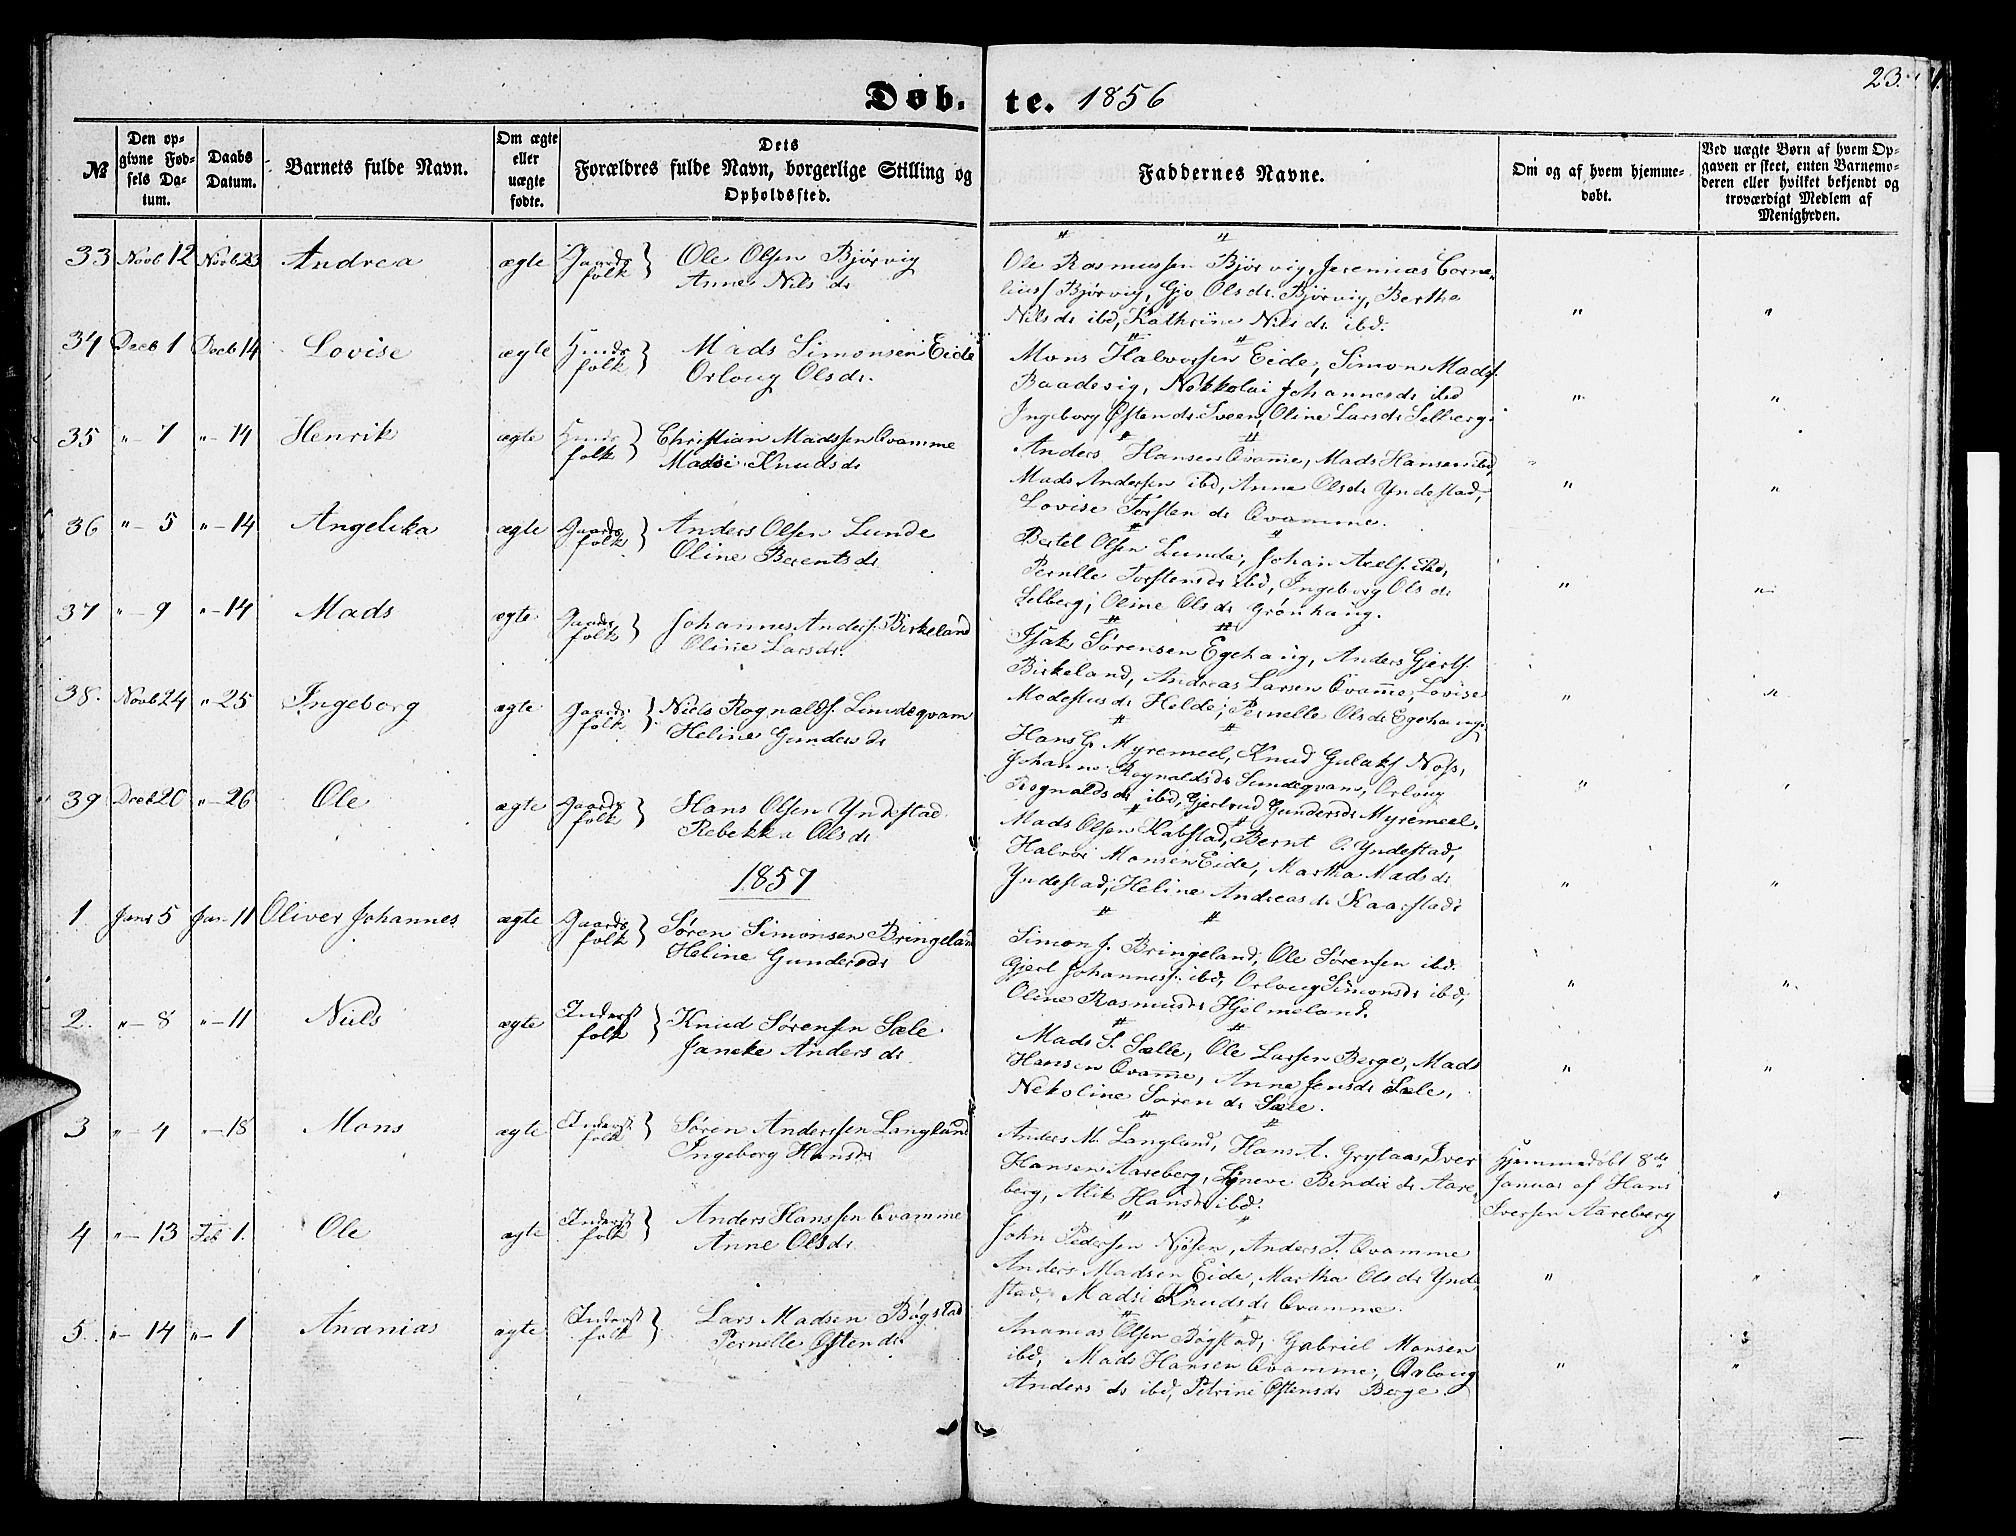 23.
Døb. te. 1856
№
Den op-
givne Fød-
sels Da-
tum.
Daabs
Datum.
Barnets fulde Navn.
Om ægte
eller
uægte
fødte.
Dets
Forældres fulde Navn, borgerlige Stilling og
Opholdssted.
Faddernes Navne.
Om og af hvem hjemme-
døbt.
Ved uægte Børn af hvem Op-
gaven er skeet, enten Barnemo-
deren eller hvilket bekjendt og
troværdigt Medlem af
Menigheden.
33 Novb 12 Novb 23 Andrea ægte Gaards
folk } Ole Olsen Bjørvig
Anne Nils dr
Ole Rasmussen Bjørvig, Jeremias Corne-
liuss Bjørvig, Gjo Olsdr Bjørvig, Berthe
Nilsdr ibd, Kathrine Nilsdr ibd. " "
34 Decb 1 Decb 14 Lovise ægte Huus
folk } Mads Simonsen Eide
Orloug Olsdr.
Mons Halvorsen Eide, Simon Mads.
Baadevig, Nekkolai Johannesdr ibd
Ingeborg Østendr Sveen, Oline Larsdr Selberg. " "
35 " 7 " 14 Henrik ægte Huus
folk } Christian Madssen Qvamme
Madsi Knudsdr
Anders Hansen Qvame, Mads Hansen ibd,
Mads Andersen ibd, Anne Olsdr Yndestad,
Lovise Torsten dr Qvamme. " "
36 " 5 " 14 Angelika ægte Gaards
folk } Anders Olsen Lunde
Oline Berentsdr
Bertel Olsen Lunde, Johan Axels. ibd,
Pernille Torstensdr ibd, Ingeborg Olsdr
Selberg, Oline Olsdr Grønhaug. " "
37 " 9 " 14 Mads ægte Gaards
folk } Johannes Anders. Birkeland
Oline Larsdr.
Isak Sørensen Egehaug, Anders Gjerts.
Birkeland, Andreas Larsen Qvame, Lovise
Modestusdr Helde, Pernelle Olsdr Egehaug. " "
38. Novb 24 " 25 Ingeborg ægte Gaards
folk } Niels Rognalds. Lundeqvam
Heline Gundersdr
Hans G. Myremeel, Knud Gulaks. Noss,
Johanne Rognaldsdr Lundeqvam, Orloug
Rognaldsdr ibd, Gjertrud Gundersdr Myremeel. " "
39 Decb 20 " 26 Ole ægte Gaards
folk } Hans Olsen Yndestad
Rebekka Olsdr
Mads Olsen Kabstad, Bernt O. Yndestad,
Halvor Monsen Eide, Martha Madsdr
Yndestad, Heline Andreasdr Kaarstad. " "
1857
1. Janr 5 Jan 11 Oliver Johannes ægte Gaards
folk } Søren Simonsen Bringeland
Heline Gundersdr
Simon J. Bringeland, Ole Sørensen ibd.
Gjert Johanness. ibd, Orloug Simonsdr ibd,
Oline Rasmusdr Hjelmeland. " "
2. " 8 " 11 Niels ægte Inderst
folk } Knud Sørensen Sæle.
Janeke Andersdr
Mads S. Sælle, Ole Larsen Berge, Mads
Hansen Qvame, Anne Jensdr Sæle,
Nekoline Sørendr Sæle. " "
3 " 4 " 18 Mons ægte Inderst
folk } Søren Anderssen Langland
Ingeborg Hansdr
Anders M. Langland, Hans A. Grytaas, Iver
Hansen Aareberg, Synneve Bendixdr Aare-
berg, Alik Hansdr ibd.
Hjemmedøbt 8de
Januar af Hans
Iversen Aareberg
4 " 13 Feb 1. Ole ægte Inderst
folk } Anders Hanssen Qvamme
Anne Olsdr
John Pedersen Njøsen, Anders T. Qvamme
Anders Madsen Eide, Martha Olsdr Ynde-
stad, Madsi Knudsdr Qvamme. " "
5. " 14 " 1 Ananias ægte Inderst
folk } Lars Madsen Bøgstad
Pernelle Østendr
Ananias Olsen Bøgstad, Gabriel Monsen
ibd, Mads Hansen Qvamme, Orloug
Anders dr ibd, Petrine Østensdr Berge. " "